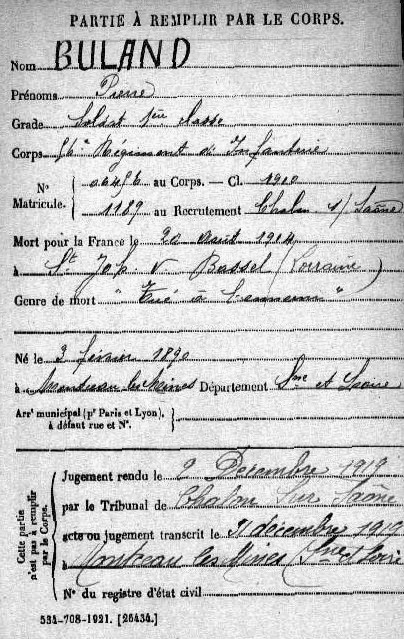 PARTIE À REMPLIR PAR LE CORPS.
Nom BULAND
Prénoms Pierre
Grade Soldat 1ère classe
Corps 56e Régiment d'Infanterie
N° Matricule. 06486 au Corps. — Cl. 1910
1189 au Recrutement Chalon s/ Saône
Mort pour la France le 20 août 1914
à St Joh. v Bassel (Lorraine)
Genre de mort "Tué à l'ennemi"
Né le 3 février 1890
à Montceau les Mines Département Sne et Loire
Arrt municipal (pr Paris et Lyon),
à défaut rue et N°.
Cette partie n'est pas à remplir par le Corps.
Jugement rendu le 2 Décembre 1919
par le Tribunal de Chalon sur Saône
acte ou jugement transcrit le décembre 1919
à Montceau les Mines (Sne et Loire
N° du registre d'état civil
534-708-1921. [26434.]